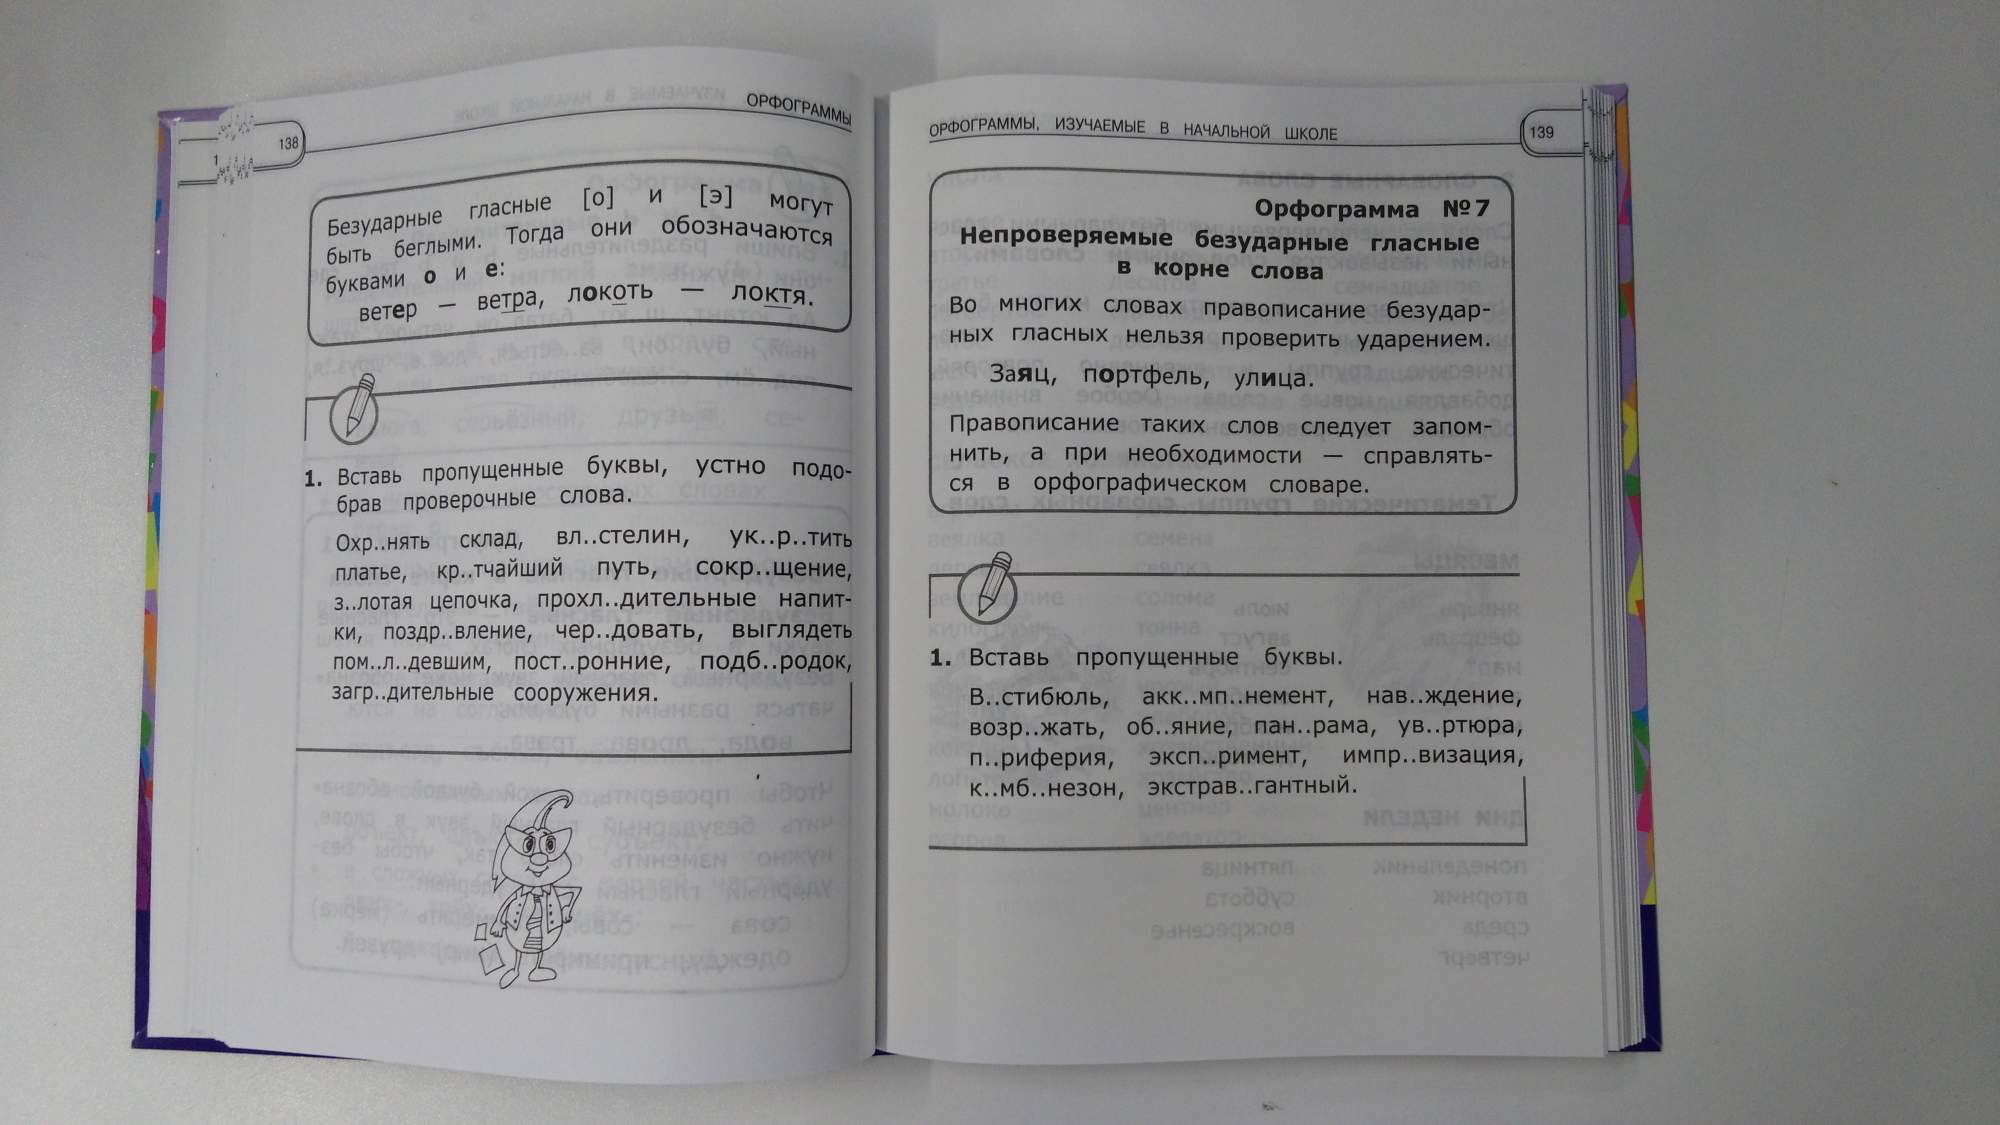 138
ОРФОГРАММЫ
Безударные гласные [о] и [э] могут
быть беглыми. Тогда они обозначаются
буквами о и е:
ветер — ветра, локоть — локтя.
1. Вставь пропущенные буквы, устно подо-
брав проверочные слова.
Охр..нять склад, вл..стелин, ук..р..тить
платье, кр..тчайший путь, сокр..щение,
з..лотая цепочка, прохл..дительные напит-
ки, поздр..вление, чер..довать, выглядеть
пом..л..девшим, пост..ронние, подб..родок,
загр..дительные сооружения.
ОРФОГРАММЫ, ИЗУЧАЕМЫЕ В НАЧАЛЬНОЙ ШКОЛЕ
139
Орфограмма №7
Непроверяемые безударные гласные
в корне слова
Во многих словах правописание безудар-
ных гласных нельзя проверить ударением.
Заяц, портфель, улица.
Правописание таких слов следует запом-
нить, а при необходимости — справлять-
ся в орфографическом словаре.
1. Вставь пропущенные буквы.
В..стибюль, акк..мп..немент, нав..ждение,
возр..жать, об..яние, пан..рама, ув..ртюра,
п..риферия, эксп..римент, импр..визация,
к..мб..незон, экстрав..гантный.